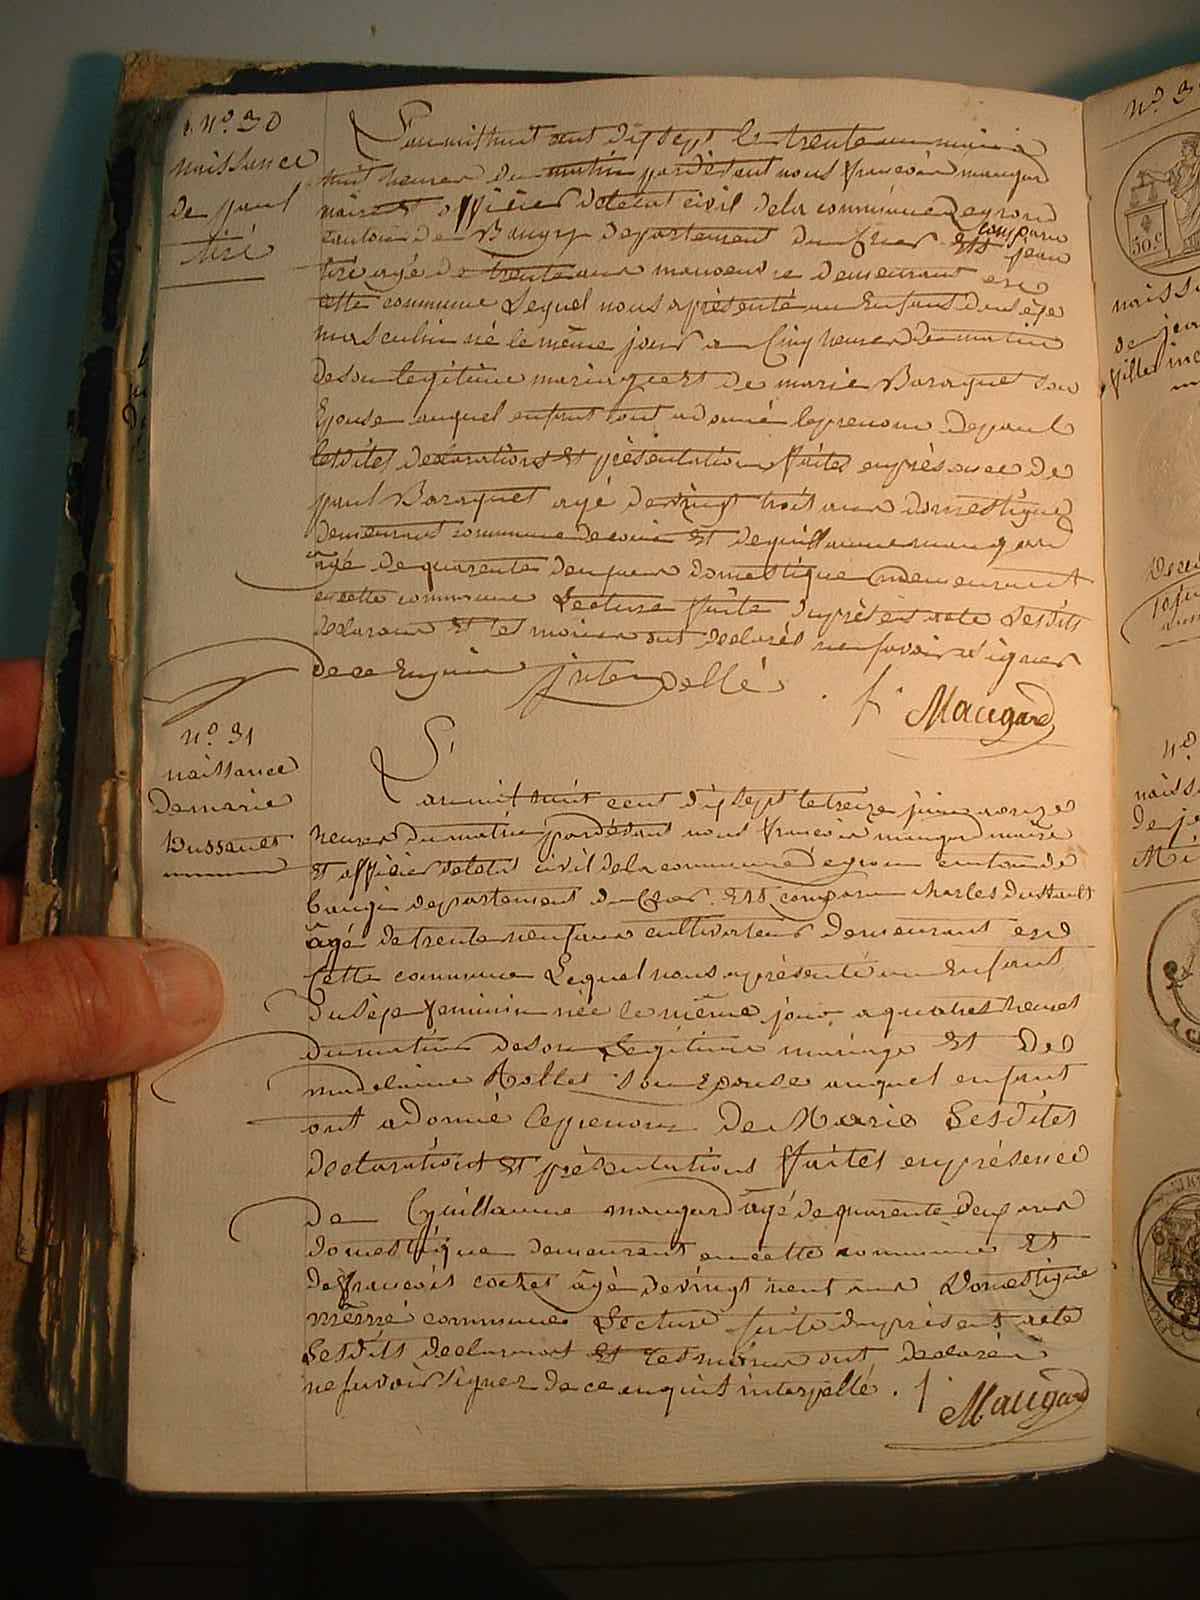 n.º 30
naissance
de paul
tiré
L'an mil huit cent dix sept le trente un mai a
huit heures du matin pardevant nous françois maugard
maire et officier deletat civil dela commune
canton de Baugy departement du Cher est comparu jean
tiré agé de trente ans manoeuvre demeurant en
cette commune Lequel nous aprésenté un Enfant du sexe
masculin né le même jour a Cinq heures du matin
deson legitime mariage et de marie Baraquet son
Epouse auquel enfant tout adonné leprenom depaul
lesdites declarations et présentation faites enprésence de
paul Baraquet agé devingt trois ans domestique
demeurant commune et deguillaume maugard
agé dequarente deux ans domestique demeurant
encette commune Lecture faite duprésent acte Lesdits
declarans et temoins ont declarés nesavoir signer
dece Enquis interpellé. f. Maugard
n.º 31
naissance
de marie
Dussault
L'an mil huit cent dix sept letreize juin a onze
heures dumatin pardevant nous françois maugard maire
et officier deletat civil dela commune canton de
baugi departement du Cher. Est comparu charles dussault
âgé detrente neuf ans cultivateur demeurant en
Cette commune Lequel nous aprésenté un Enfant
du sexe feminin née le même jour a quatre heures
dumatin deson Legitime mariage et de
madelaine Rollet son Epouse auquel enfant
ont adonné leprenom de Marie Lesdites
declarations et présentations faites enprésence
de Guillaume maugard âgé dequarente deux ans
domestique demeurant encette commune et
defrancois cochet âgé devingt neuf ans Domestique
même commune Lecture faite duprésent acte
Lesdits declarant et temoins ont declarés
nesavoir signer de ce enquit interpellé. f Maugard
n.º 3
50 c